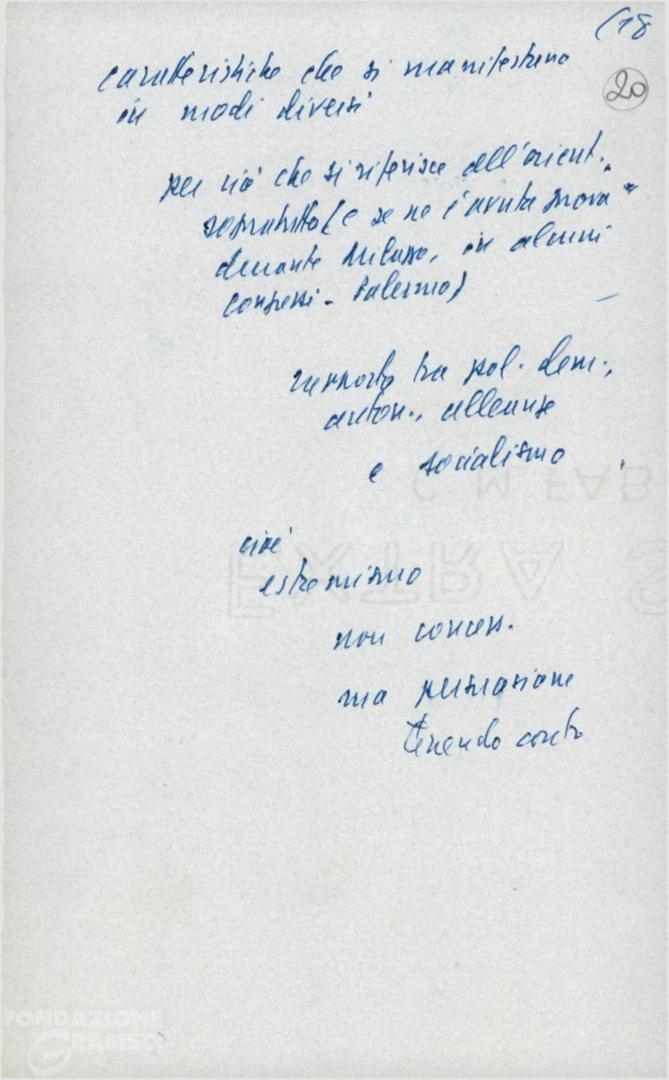 (18
20
caratteristiche che si manifestano
in modi diversi
per ciò che si riferisce all'orient.
soprattutto (e se ne è avuta prova
durante, in alcuni
congressi - Palermo)
rapporto tra pol. dem.,
auton., alleanze
e socialismo
cioè
estremismo
non concess.
ma persuasione
tenendo conto
C M FAB
EXTRA S
FONDAZIONE
GRAMSCI